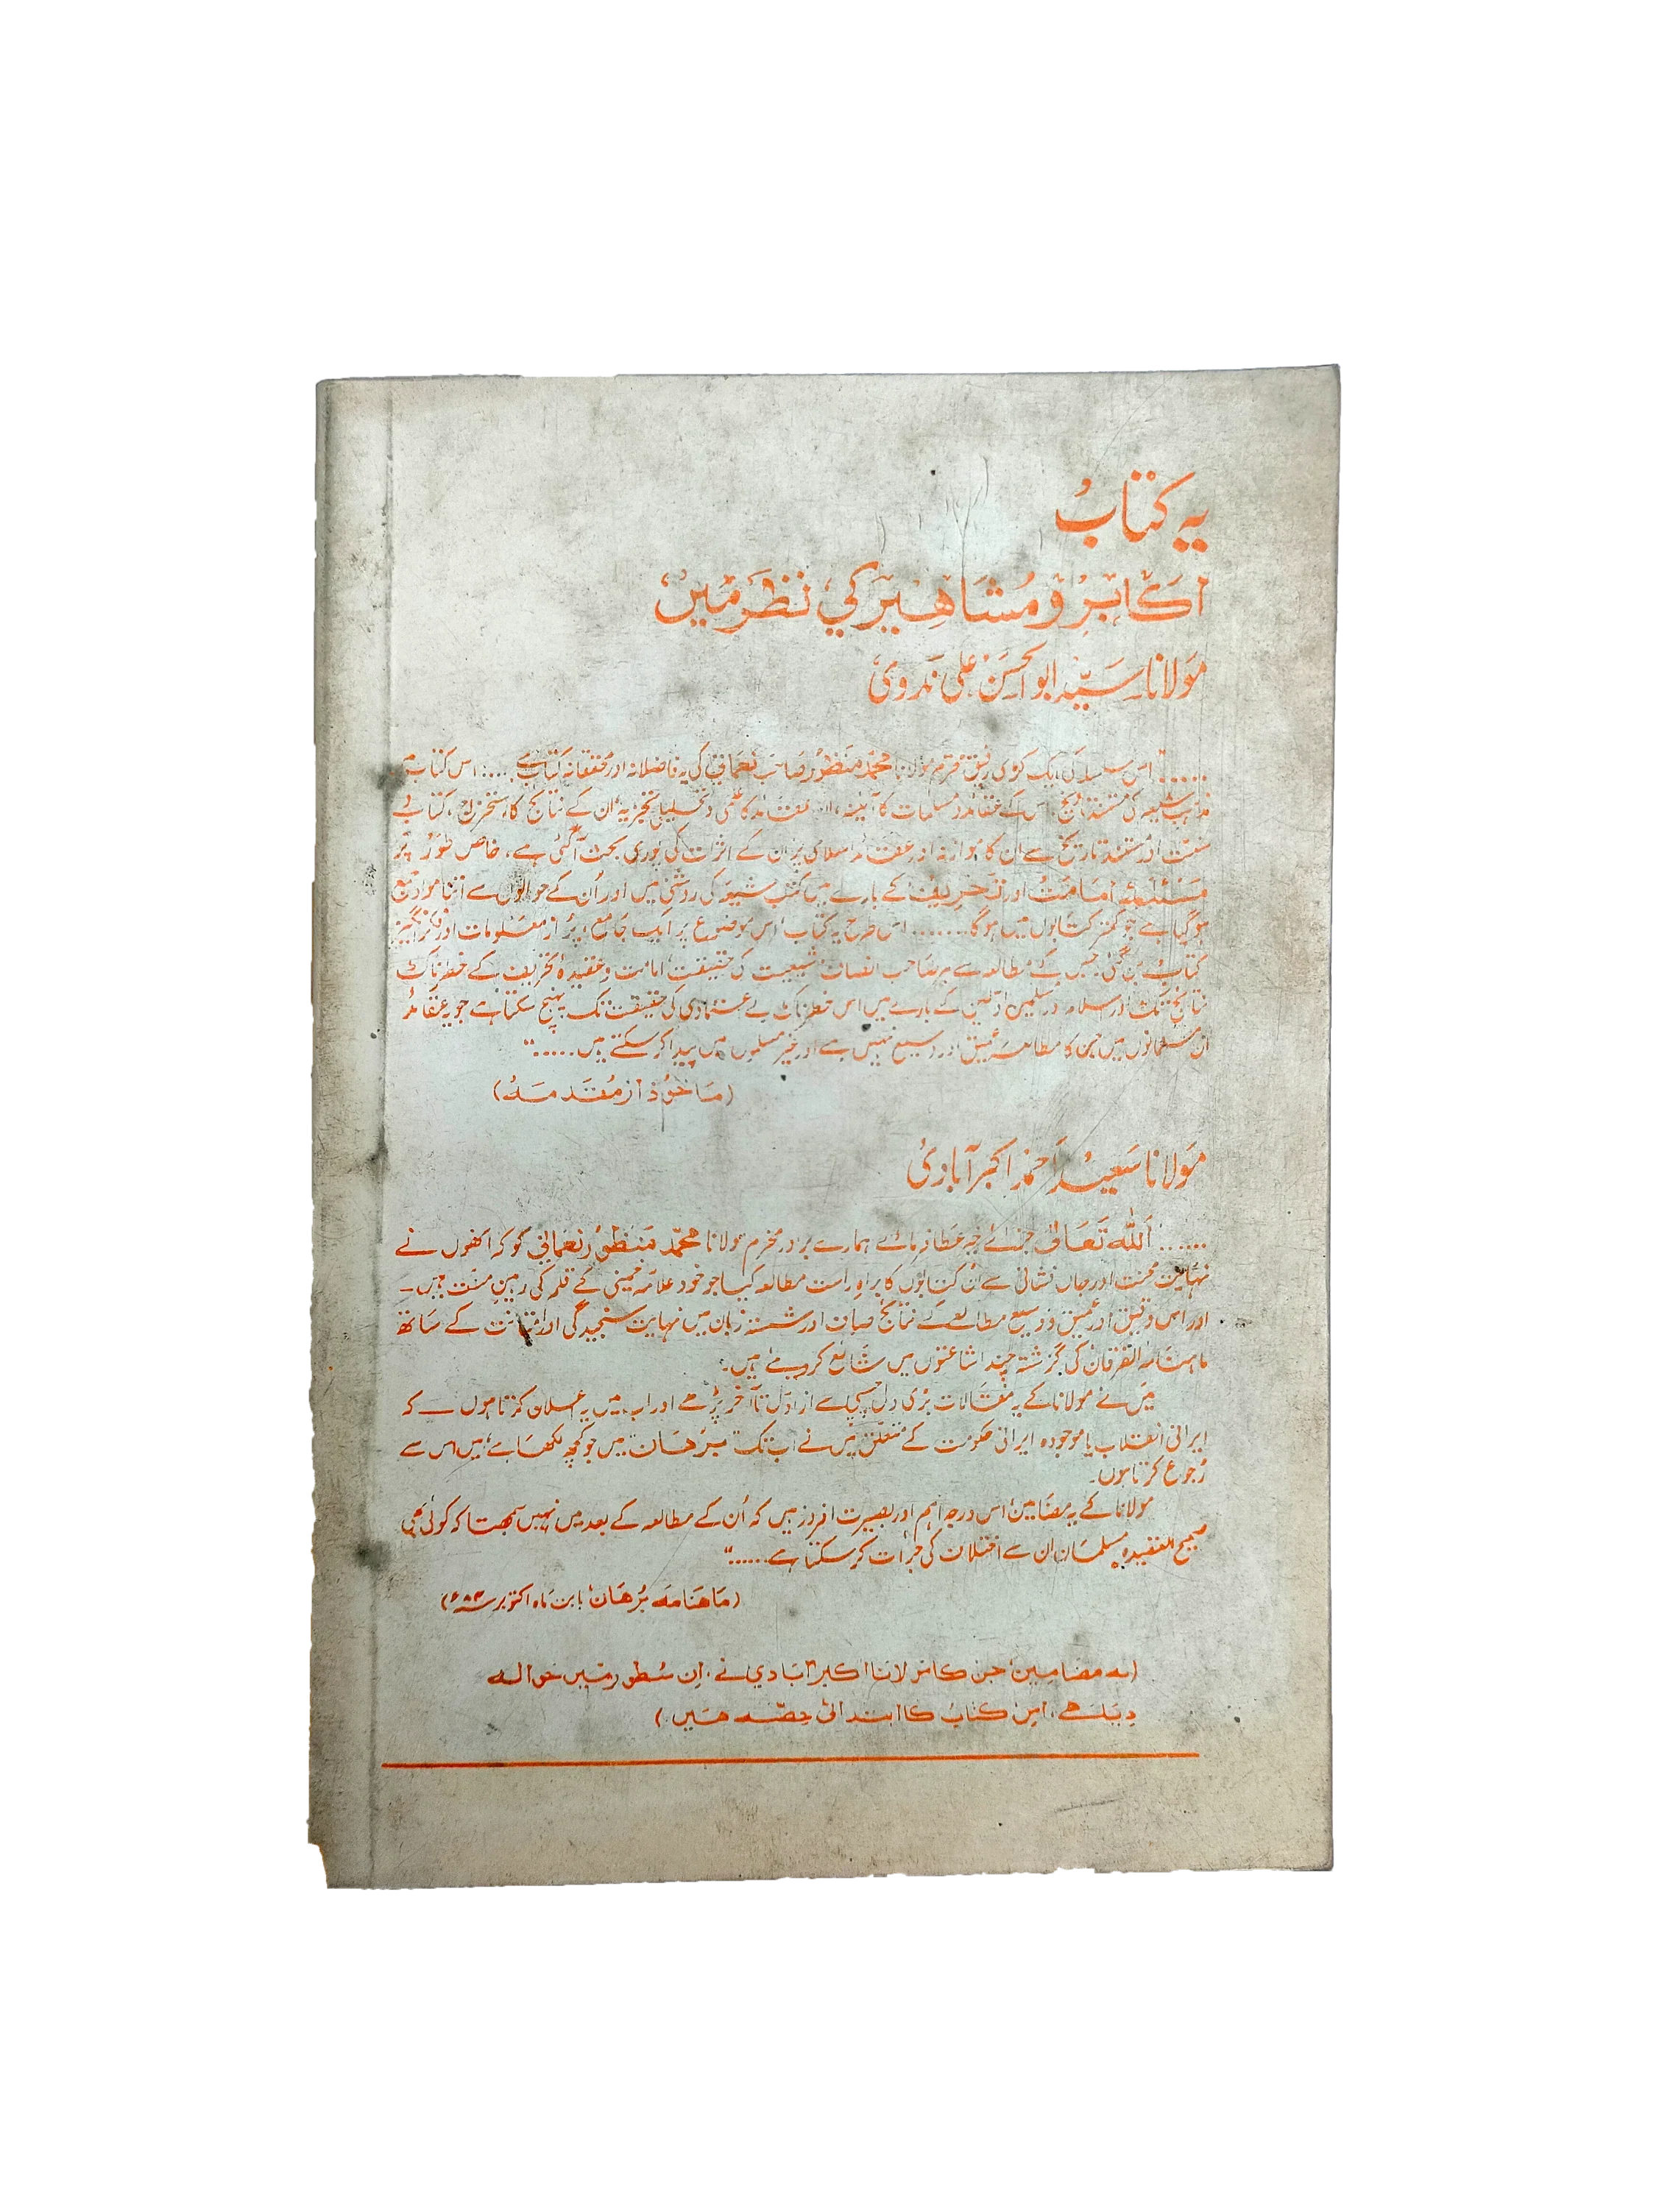 یہ کتاب
اکابر و مشاہیر کی نظر میں
مولانا سید ابوالحسن علی ندوی
...... اس سلسلہ کی ایک کڑی رفیق محترم مولانا محمد منظور صاحب نعمانی کی یہ فاضلانہ اور محققانہ کتاب ہے ..... اس کتاب میں
مذہب شیعہ کی مستند تاریخ، اس کے عقائد و مسلمات کا آئینہ، ان عقائد کا علمی و تحلیلی تجزیہ، ان کے نتائج کا استخراج، کتاب و
سنت اور مستند تاریخ سے ان کا موازنہ اور عقائد اسلامی پر ان کے اثرات کی پوری بحث آگئی ہے، خاص طور پر
مسئلہ امامت اور تحریف کے بارے میں کتب شیعہ کی روشنی میں اور اُن کے حوالوں سے اتنا مواد جمع
ہو گیا ہے جو کمتر کتابوں میں ہوگا ....... اس طرح یہ کتاب اس موضوع پر ایک جامع، پُر از معلومات اور فکر انگیز
کتاب بن گئی جس کے مطالعہ سے ہر صاحب انصاف شیعیت کی حقیقت، امامت و عقیدہ تحریف کے خطرناک
نتائج تک اور اسلام اور مسلمین اولین کے بارے میں اس خطرناک بے اعتمادی کی حقیقت تک پہنچ سکتا ہے جو یہ عقائد
ان مسلمانوں میں جن کا مطالعہ عمیق اور وسیع نہیں ہے اور غیر مسلموں میں پیدا کر سکتے ہیں ......"
(ماخوذ از مقدمہ)
مولانا سعید احمد اکبر آبادی
...... اللہ تعالیٰ جزائے خیر عطا فرمائے ہمارے برادر محترم مولانا محمد منظور نعمانی کو کہ انھوں نے
نہایت محنت اور جاں فشانی سے ان کتابوں کا براہ راست مطالعہ کیا جو خود علامہ خمینی کے قلم کی رہین منت ہیں۔
اور اس دقیق اور عمیق و وسیع مطالعے کے نتائج صاف اور شستہ زبان میں نہایت سنجیدگی اور متانت کے ساتھ
ماہنامہ الفرقان کی گزشتہ چند اشاعتوں میں شائع کر دیے ہیں۔
میں نے مولانا کے یہ مقالات بڑی دل چسپی سے از اول تا آخر پڑھے اور اب میں یہ اعلان کرتا ہوں کہ
ایرانی انقلاب یا موجودہ ایرانی حکومت کے متعلق میں نے اب تک برھان میں جو کچھ لکھا ہے، میں اس سے
رجوع کرتا ہوں۔
مولانا کے یہ مضامین اس درجہ اہم اور بصیرت افروز ہیں کہ اُن کے مطالعہ کے بعد میں نہیں سمجھتا کہ کوئی بھی
صحیح العقیدہ مسلمان ان سے اختلاف کی جرات کر سکتا ہے ......"
(ماھنامہ برھان بابت ماہ اکتوبر ۸۴ء)
(یہ مضامین جن کا مولانا اکبر آبادی نے، اِن سطور میں حوالہ
دیا ہے، اس کتاب کا ابتدائی حصّہ ھیں۔)